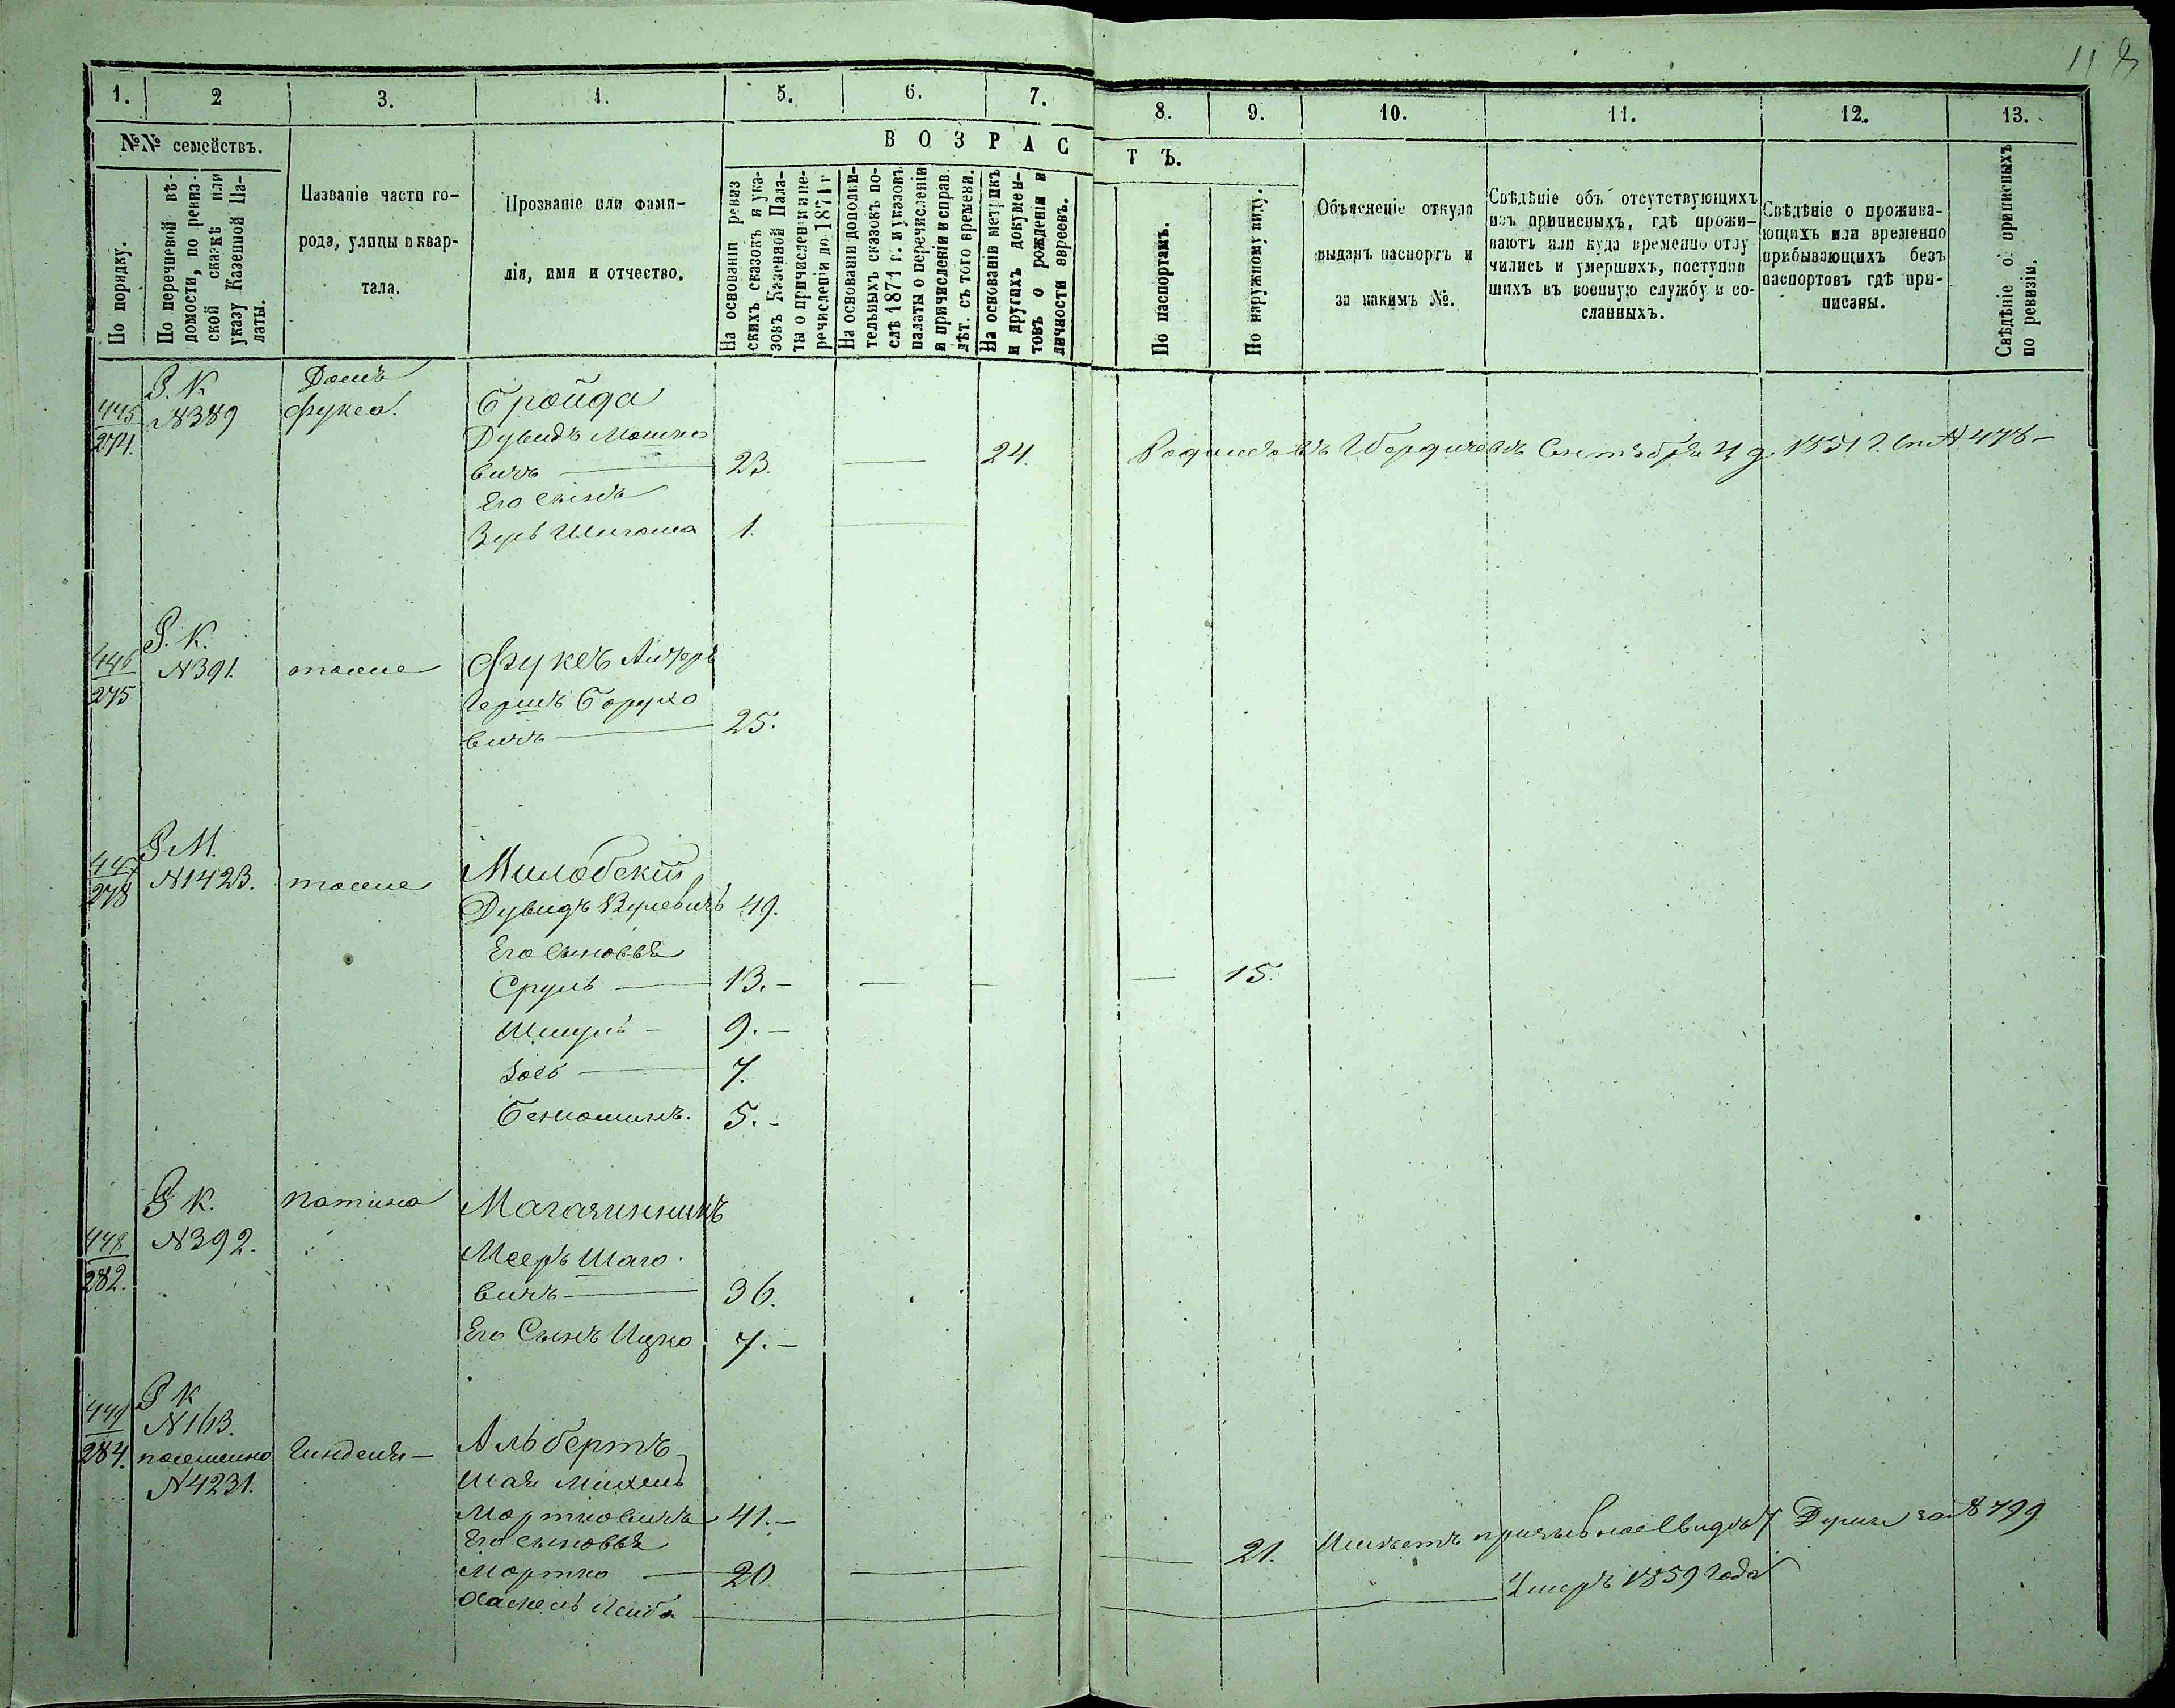 118
1. 2 3. 4. 5. 6. 7. 8. 9. 10. 11. 12. 13.
№№ семействъ.
По порядку.
По перечневой вѣ-
домости, по ревиз-
ской сказкѣ или
указу Казенной Па-
латы.
Названіе части го-
рода, улицы и квар-
тала.
Прозваніе или фами-
лія, имя и отчество.
ВОЗРАСТЪ.
На основаніи ревиз
скихъ сказокъ и ука-
зовъ Казенной Пала-
ты о причисленіи и пе-
речисленіи до 1871 г
На основаніи дополни-
тельныхъ сказокъ по-
слѣ 1871 г. и указовъ
палаты о перечисленіи
и причисленіи и справ.
лѣт. съ того времени.
На основаніи метрикъ
и другихъ докумен-
товъ о рожденіи и
личности евреевъ.
По паспортамъ.
По наружному виду.
Объясненіе откуда
выданъ паспортъ и
за какимъ №.
Свѣдѣніе объ отсутствующихъ
изъ приписныхъ, гдѣ прожи-
ваютъ или куда временно отлу
чились и умершихъ, поступив
шихъ въ военную службу и со-
сланныхъ.
Свѣдѣніе о прожива-
ющихъ или временно
прибывающихъ безъ
паспортовъ гдѣ при-
писаны.
Свѣдѣніе о приписныхъ
по ревизіи.
445
274.
Р. К.
№389
Домъ
Фукса.
Бройда
Дувидъ Мошко
вичъ — 23. — 24. Родился въ Бердичевѣ Сентября 4 д. 1851 г. ст № 478 —
Его сынъ
Зусь Шигома 1. —
446
275
Р. К.
№391.
тоже
Фуксъ
Гершъ Борухо
вичъ — 25.
447
278
Р М.
№1423.
тоже
Милобскій
Дувидъ Вулевичъ 49.
Его сыновья
Сруль — 13. — — — — 15.
Шмуль — 9. —
Іось — 7.
Бенюминъ. 5. —
448
282.
Р К.
№392.
Патина
Магазинникъ
Мееръ Шаго
вичъ — 36.
Его Сынъ Ицко 7. —
449
284.
Р К
№163.
посемейно
№4231.
Гинделя —
Альбертъ
Шая Михель
Мортковичъ 41. —
Его сыновья
Мортко — 20 — — 21. Имѣетъ призывное Свидѣт Думы за № 8799
Хаскель Лейба — Умеръ 1859 года